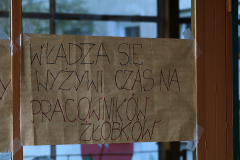 WŁADZA SIĘ
WYŻYWI CZAS NA
PRACOWNIKÓW
ŻŁOBKÓW